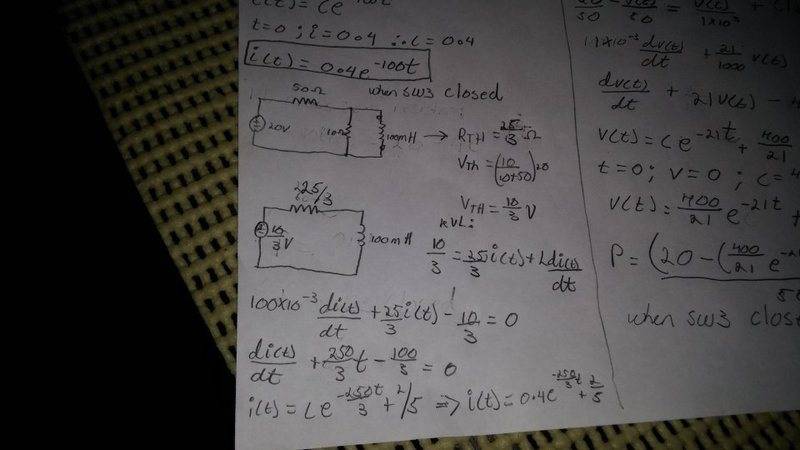 t=0 ; i=0.4 ∴ c=0.4
i(t) = 0.4e^-100t
when sw3 closed
50Ω
20V
10Ω
100mH → RTH = 25/3 Ω
VTh = (10/(10+50)) 20
VTH = 10/3 V
225/3
10/3 V
100mH
KVL:
10/3 = 25/3 i(t) + L di(t)/dt
100×10^-3 di(t)/dt + 25/3 i(t) - 10/3 = 0
di(t)/dt + 250/3 t - 100/3 = 0
i(t) = Ce^-250t/3 + 2/5 ⇒ i(t) = 0.4e^-250/3 t + 2/5
dv(t)/dt + 21/1000 v(t)
dv(t)/dt + 21v(t) -
v(t) = Ce^-21t + 400/21
t=0 ; v=0 ; c=
v(t) = 400/21 e^-21t +
P = (20 - (400/21 e
when sw3